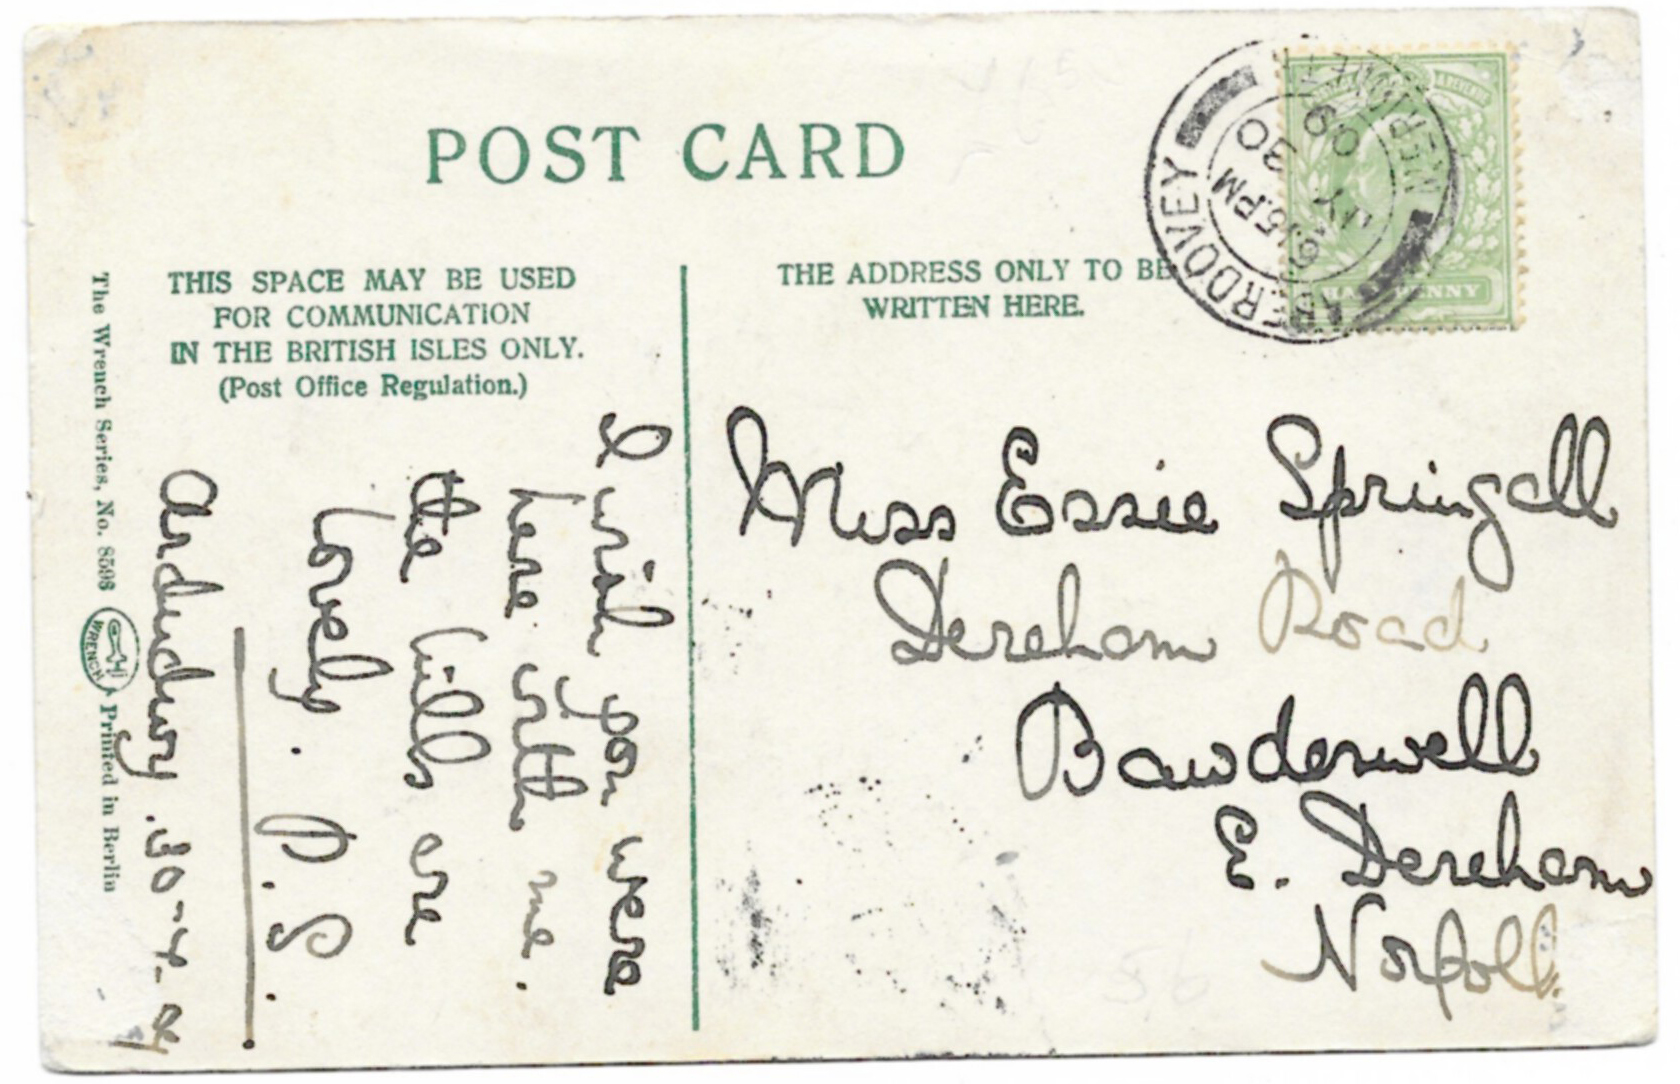 POST CARD
THIS SPACE MAY BE USED
FOR COMMUNICATION
IN THE BRITISH ISLES ONLY.
(Post Office Regulation.)
THE ADDRESS ONLY TO BE
WRITTEN HERE.
The Wrench Series, No. 8598
WRENCH
Printed in Berlin
I wish you were
here with me.
the hills are
lovely. P.S.
Miss Essie Springall
Dereham Road
Bawdeswell
E. Dereham
Norfolk
ABERDOVEY
6.15PM
JY 30
09
HALFPENNY